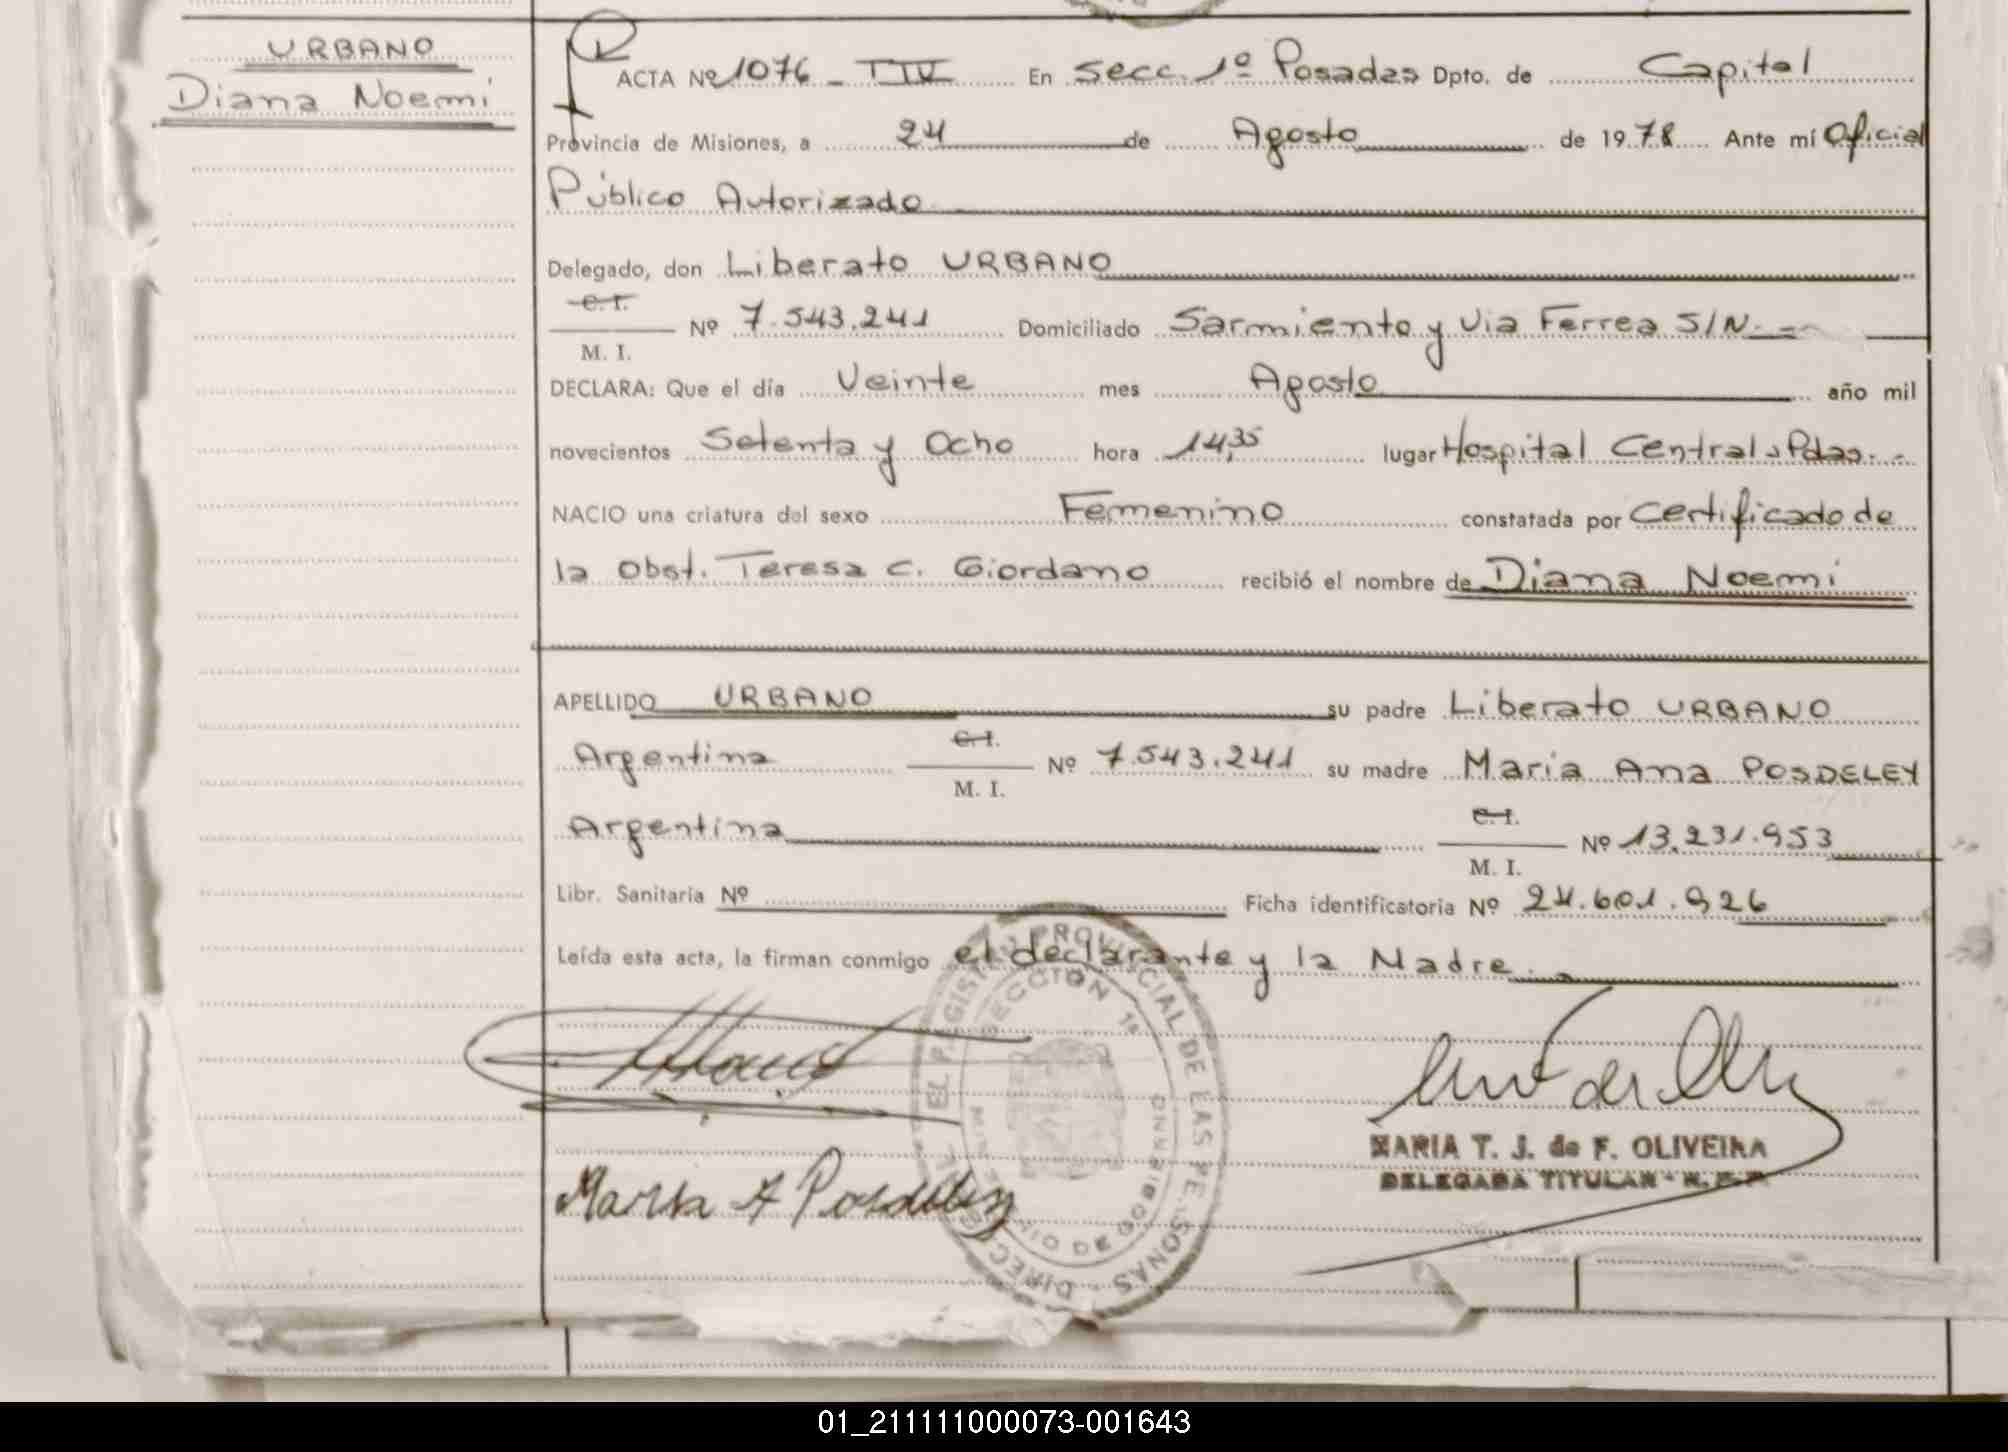 URBANO
Diana Noemi
ACTA Nº 1076 - TIV En Secc. 1º Posadas Dpto. de Capital
Provincia de Misiones, a 24 de Agosto de 1978 Ante mí Oficial
Público Autorizado
Delegado, don Liberato URBANO
C. I.
M. I. Nº 7.543.241 Domiciliado Sarmiento y Via Ferrea S/N.-
DECLARA: Que el día Veinte mes Agosto año mil
novecientos Setenta y Ocho hora 14,35 lugar Hospital Central, Pdas.-
NACIO una criatura del sexo Femenino constatada por Certificado de
la Obst. Teresa C. Giordano recibió el nombre de Diana Noemi
APELLIDO URBANO su padre Liberato URBANO
Argentina C. I. M. I. Nº 7.543.241 su madre Maria Ana POSDELEY
Argentina C. I. M. I. Nº 13.231.953
Libr. Sanitaria Nº Ficha identificatoria Nº 24.601.926
Leída esta acta, la firman conmigo el declarante y la Madre.
Maria A Posdeley
MARIA T. J. de F. OLIVEIRA
DELEGADA TITULAR
REGISTRO PROVINCIAL DE LAS PERSONAS
SECCION 1ª
01_211111000073-001643